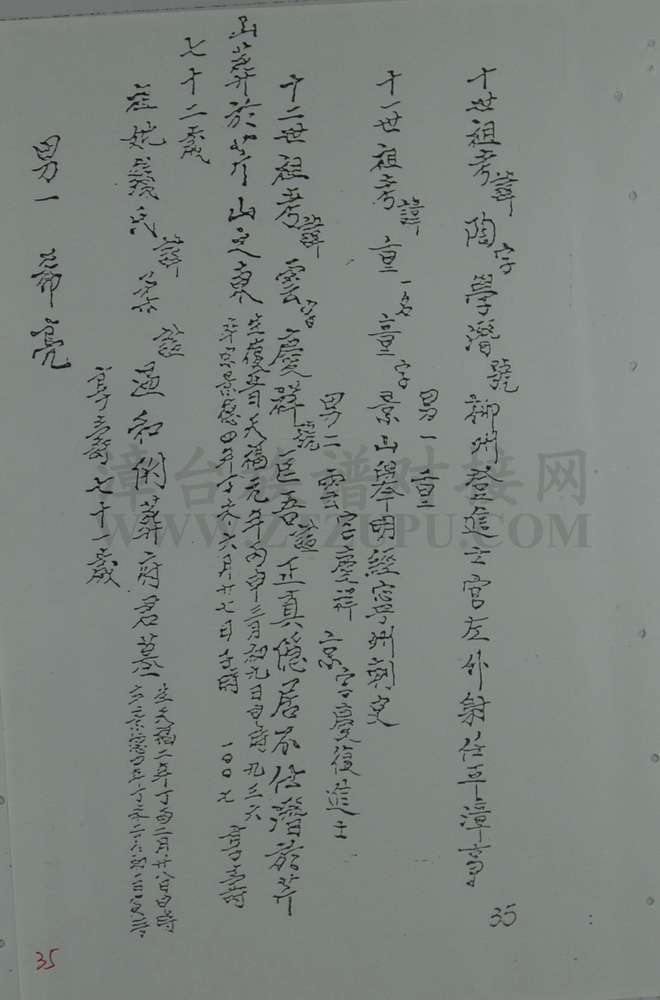 十世祖考諱陶字學潛號柳州登進士官左外射任平漳事
男一 重
十一世祖考諱重一名童字景山舉明經寧州刺史
男二 雲字慶祥 京字慶復進士
十二世祖考諱雲字慶祥號匡吾諡正真隱居不仕潛於芹
山葬於芹山之東
生後晉天福元年丙申三月初九日申時九三六
卒宋景德四年丁未六月廿七日子時 一00七 享壽
七十二歲
諱柔諡溫和附葬府君墓
生天福二年丁酉二月廿八日
享壽七十一歲
男一 希亮
35
35
漳台族谱对接网
WWW.ZTZUPU.COM